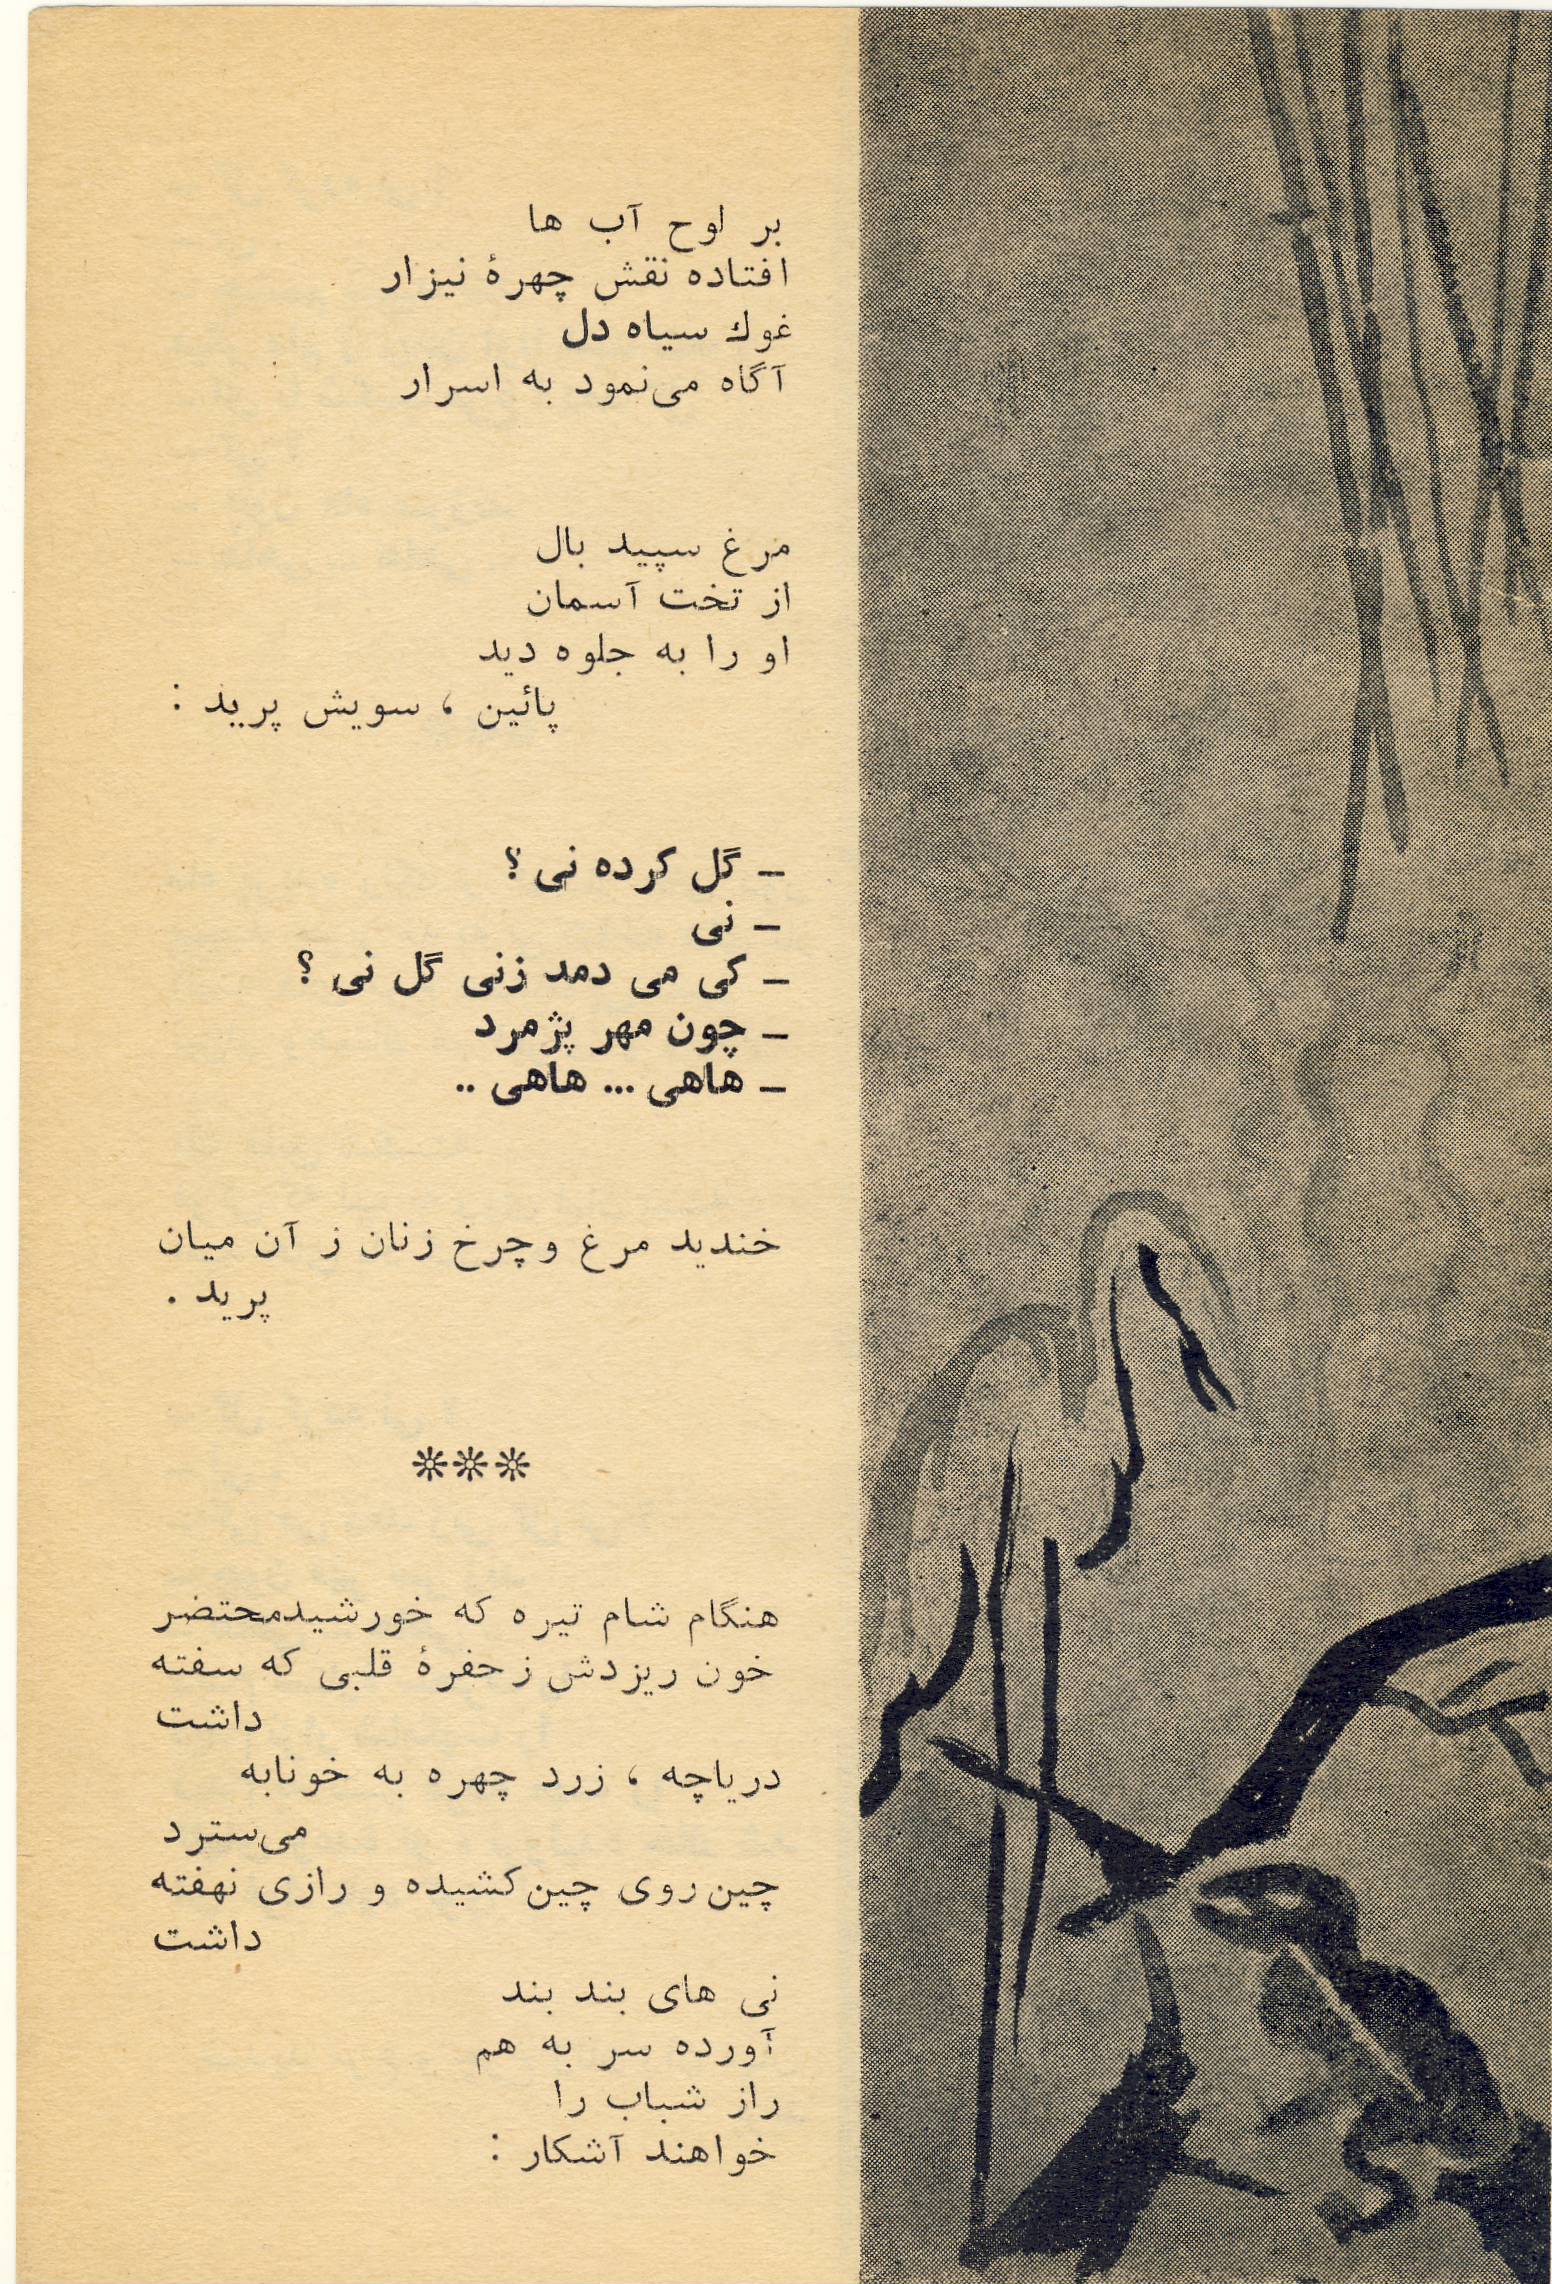 بر لوح آب ها
افتاده نقش چهرهٔ نیزار
غوك سیاه دل
آگاه می‌نمود به اسرار
مرغ سپید بال
از تخت آسمان
او را به جلوه دید
پائین ، سویش پرید :
ـ گل کرده نی ؟
ـ نی
ـ کی می دمد زنی گل نی ؟
ـ چون مهر پژمرد
ـ هاهی ... هاهی ..
خندید مرغ وچرخ زنان ز آن میان
پرید .
***
هنگام شام تیره که خورشیدمحتضر
خون ریزدش ز حفرهٔ قلبی که سفته
داشت
دریاچه ، زرد چهره به خونابه
می‌سترد
چین روی چین کشیده و رازی نهفته
داشت
نی های بند بند
آورده سر به هم
راز شباب را
خواهند آشکار :